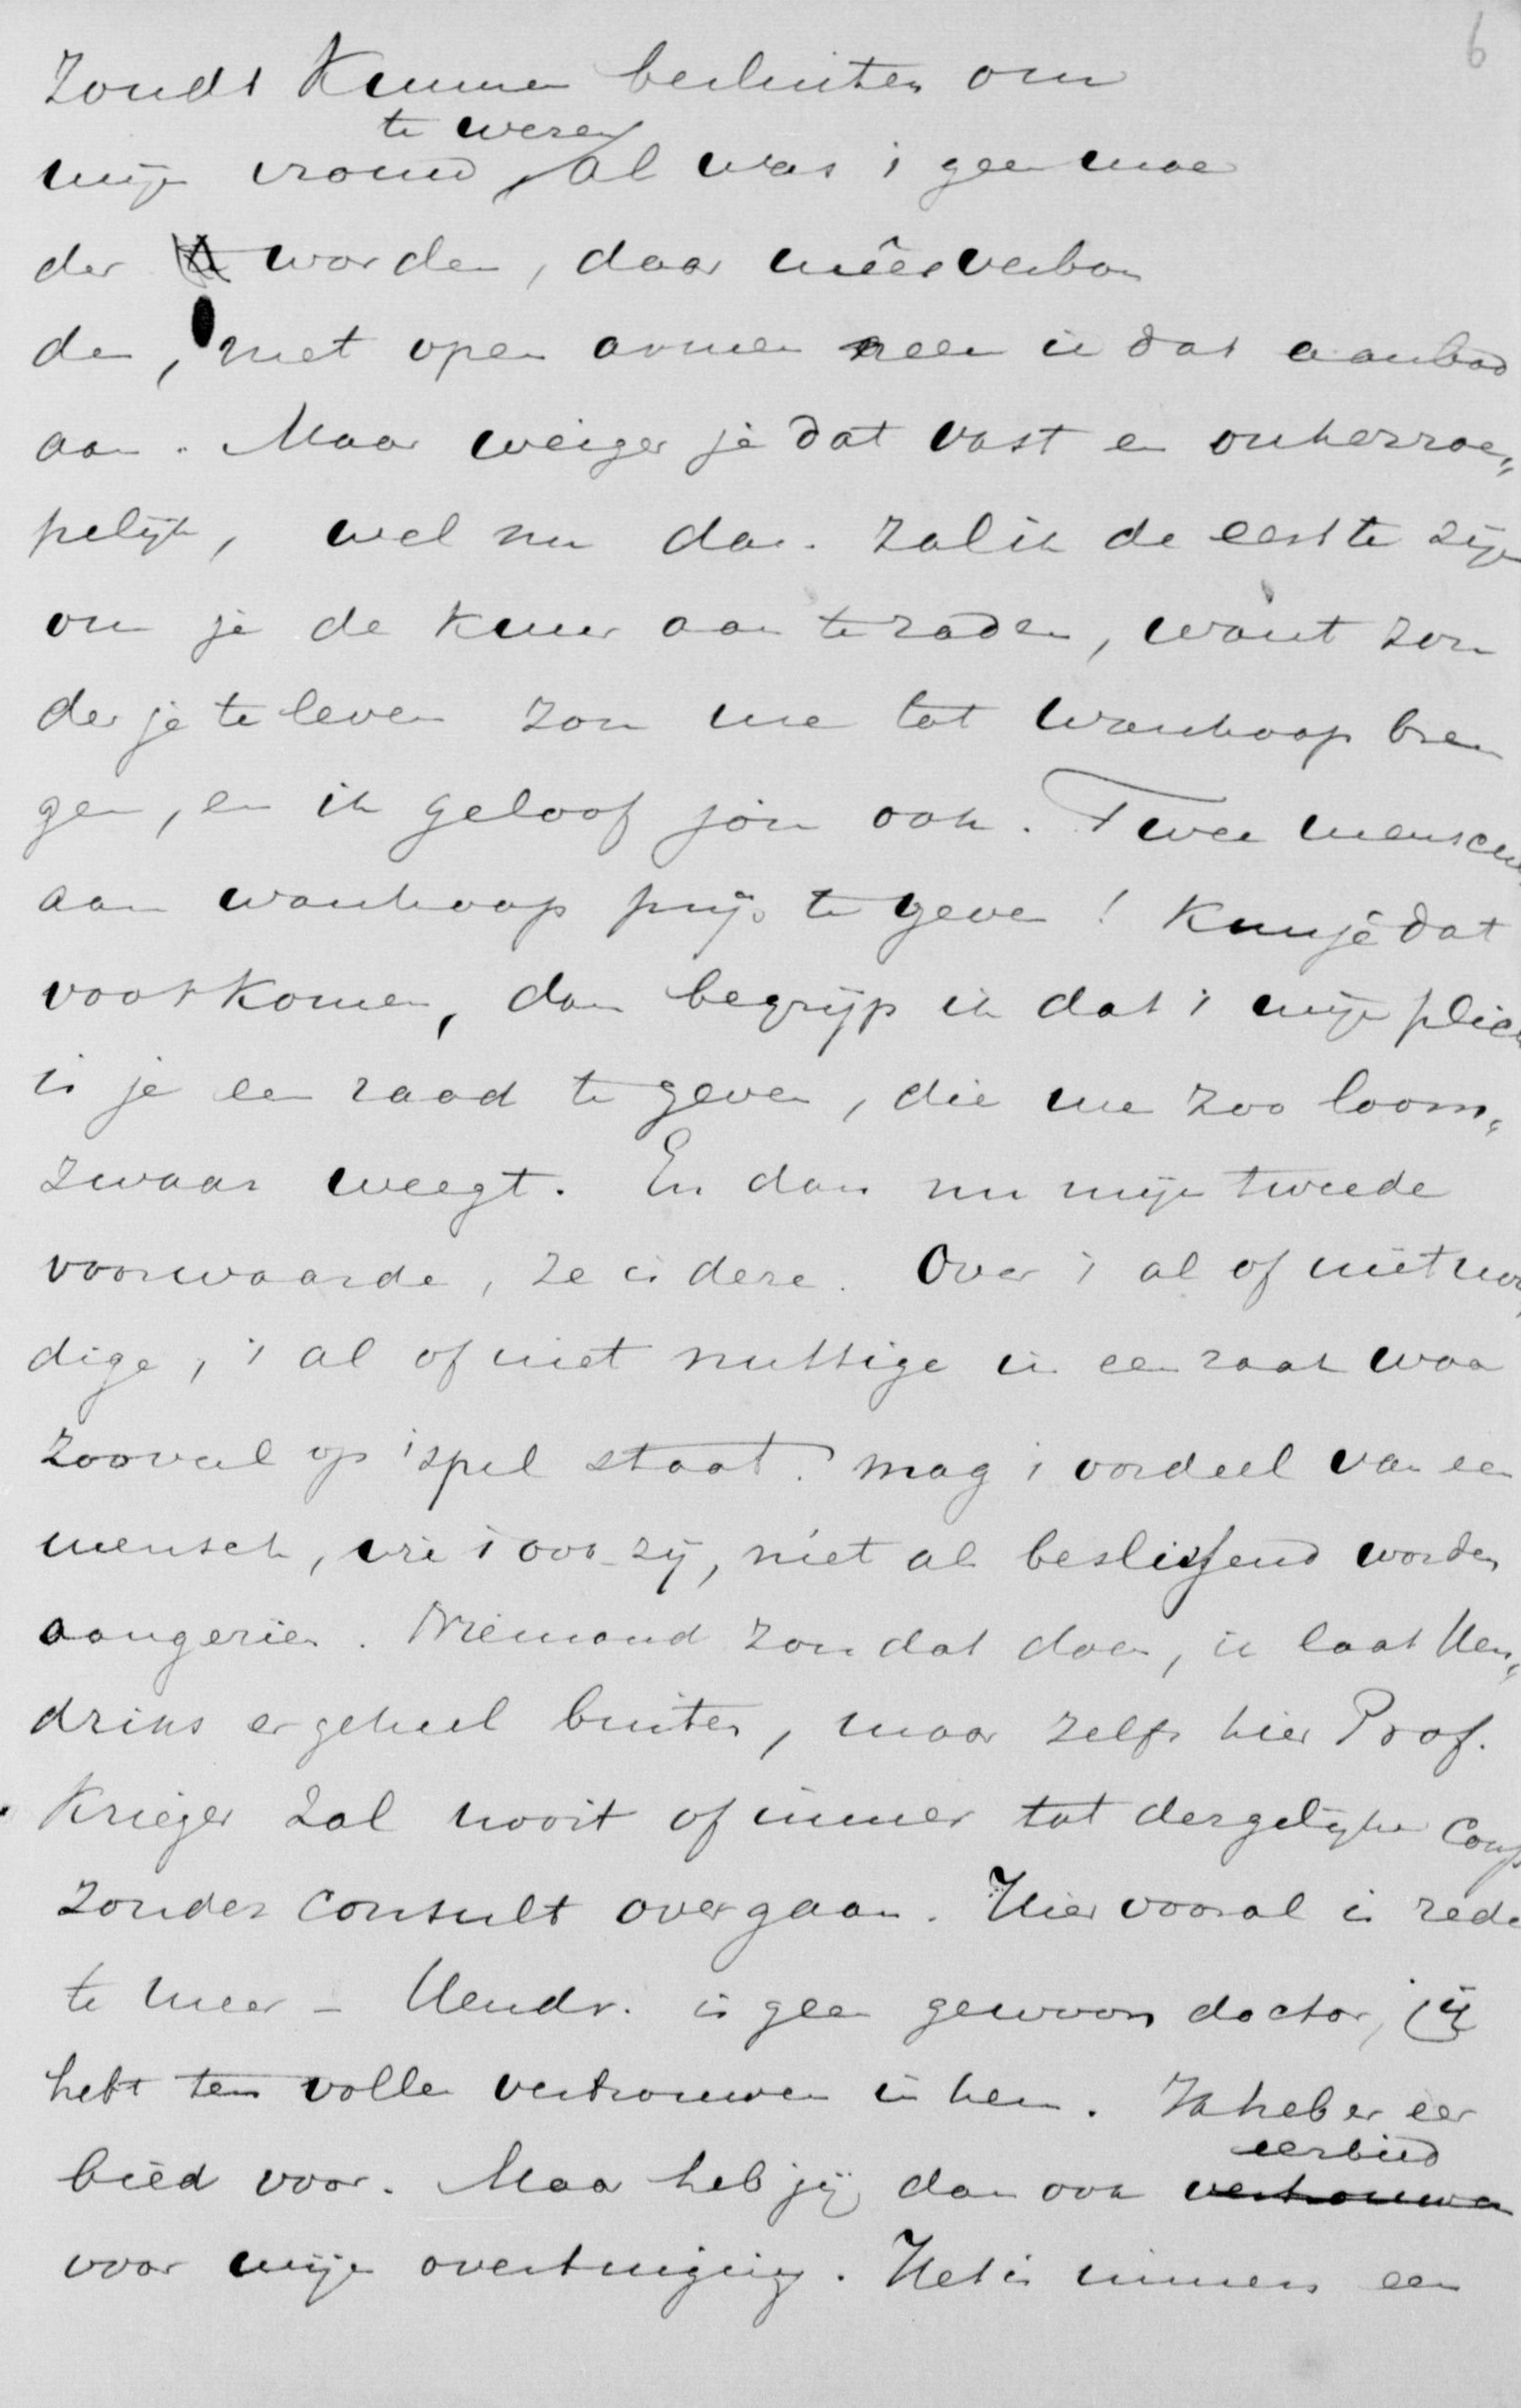 6
zoudt kunnen besluiten om
te wezen
mijn vrouw, al was 't geen moe
der worden, daar mêe verbon
den, met open armen neem ik dat aanbod
aan. Maar weiger je dat vast en onherroe„
pelijk, wel nu dan zal ik de eerste zijn
om je de kuur aan te raden, want zon
der je te leven zou me tot wanhoop bren
gen, en ik geloof jou ook. Twee menschen
aan wanhoop prijs te geven! Kun je dat
voorkomen, dan begrijp ik dat 't mijn plicht
is je een raad te geven, die me zoo loom„
zwaar weegt. En dan nu mijn tweede
voorwaarde, ze is deze. Over 't al of niet noo
dige, 't al of niet nuttige in een zaak waar
zooveel op 't spel staat mag 't oordeel van een
mensch, wie 't ook zij, niet als beslissend worden
aangezien. Niemand zou dat doen, ik laat Hen„
driks er geheel buiten, maar zelfs hier Prof.
Krieger zal nooit of immer tot dergelijke coups
zonder consult overgaan. Hier vooral is rede
te meer – Hendr. is geen gewoon doctor, jij
hebt ten volle vertrouwen in hem. Ik heb er eer
eerbied
bied voor. Maar heb jij dan ook vertrouwen
voor mijn overtuiging. Het is immers een